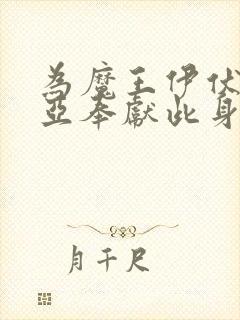 為魔王伊伏
亞奉獻此身
月千尺